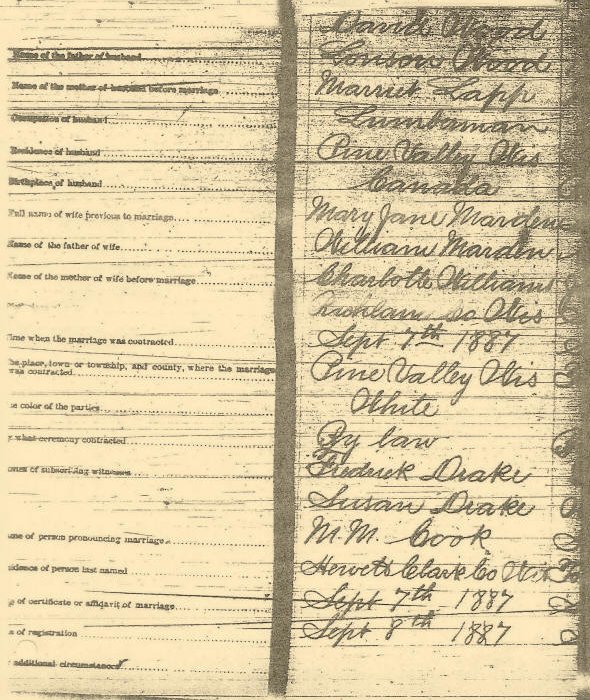 David Wood
Name of the father of husband Lonson Wood
Name of the mother of husband before marriage Marriet Lapp
Occupation of husband Lumberman
Residence of husband Pine Valley Wis
Birthplace of husband Canada
Full name of wife previous to marriage Mary Jane Marden
Name of the father of wife William Marden
Name of the mother of wife before marriage Charlotte Williams
co Wis
ime when the marriage was contracted Sept 7th 1887
he place, town or township, and county, where the marriage
was contracted Pine Valley Wis
e color of the parties White
y what ceremony contracted By law
ames of subscribing witnesses Fredrick Drake
Susan Drake
ame of person pronouncing marriage M.M. Cook
idence of person last named Hewets Clark Co Wis
e of certificate or affidavit of marriage Sept 7th 1887
e of registration Sept 8th 1887
additional circumstances